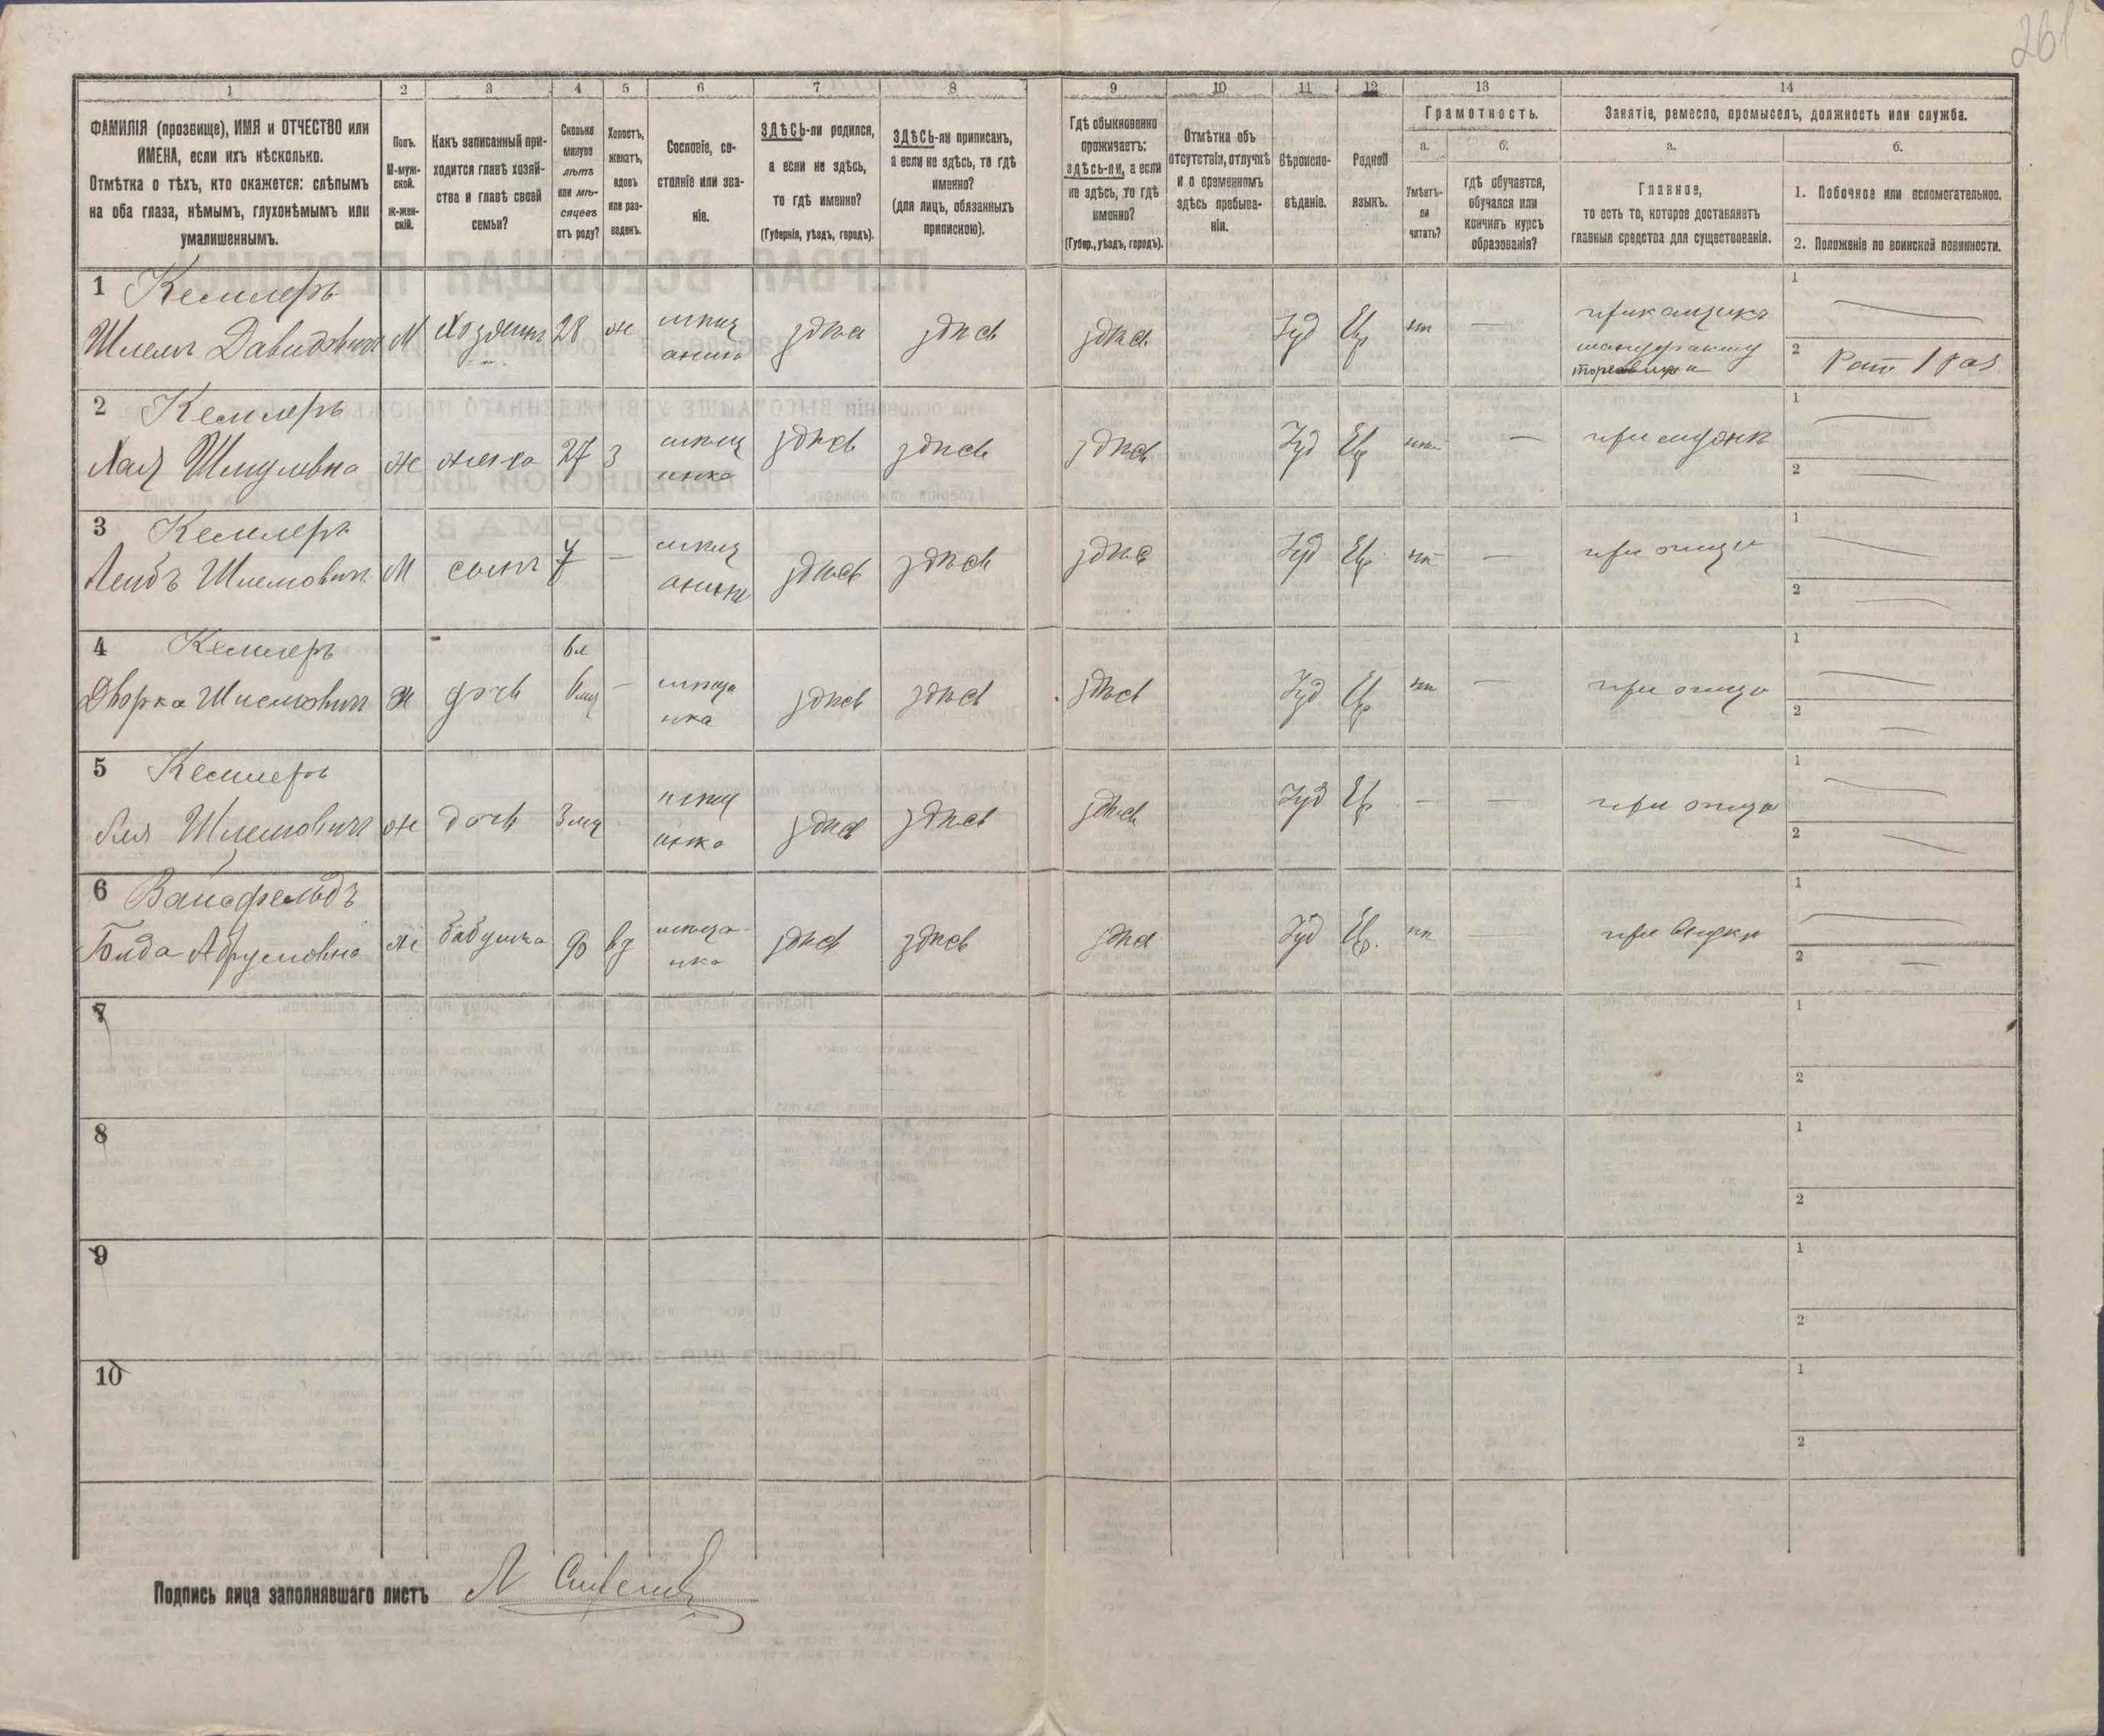 261
1 2 3 4 5 6 7 8 9 10 11 12 13 14
ФАМИЛІЯ (прозвище), ИМЯ и ОТЧЕСТВО или
ИМЕНА, если ихъ нѣсколько.
Отмѣтка о тѣхъ, кто окажется: слѣпымъ
на оба глаза, нѣмымъ, глухонѣмымъ или
умалишеннымъ.
Полъ.
М-муж-
ской.
Ж-жен-
скій.
Какъ записанный при-
ходится главѣ хозяй-
ства и главѣ своей
семьи?
Сколько
минуло
лѣтъ
или мѣ-
сяцевъ
отъ роду?
Холостъ,
женатъ,
вдовъ
или раз-
веденъ.
Сословіе, со-
стояніе или зва-
ніе.
ЗДѢСЬ-ли родился,
а если не здѣсь,
то гдѣ именно?
(Губернія, уѣздъ, городъ).
ЗДѢСЬ-ли приписанъ,
а если не здѣсь, то гдѣ
именно?
(для лицъ, обязанныхъ
припискою).
Гдѣ обыкновенно
проживаетъ:
здѣсь-ли, а если
не здѣсь, то гдѣ
именно?
(Губер., уѣздъ, городъ).
Отмѣтка объ
отсутствіи, отлучкѣ
и о временномъ
здѣсь пребыва-
ніи.
Вѣроиспо-
вѣданіе.
Родной
языкъ.
Грамотность.
а.
Умѣетъ-
ли
читать?
б.
гдѣ обучается,
обучался или
кончилъ курсъ
образованія?
Занятіе, ремесло, промыселъ, должность или служба.
а.
Главное,
то есть то, которое доставляетъ
главныя средства для существованія.
б.
1. Побочное или вспомогательное.
2. Положеніе по воинской повинности.
1 Кесслеръ
Шлема Давидовичъ М Хозяинъ 28 ж мѣщ здѣсь здѣсь здѣсь Іуд Евр нѣт — прикащикъ 1 —
анинъ мануфакту
2 Рат 1 раз
2 Кесслеръ
Хая Шмулевна Ж жена 27 З мѣщ здѣсь здѣсь здѣсь Іуд Евр нѣт — при мужѣ 1 —
анка 2 —
3 Кесслеръ
Лейбъ Шлемовичъ М сынъ 7 — мѣщ здѣсь здѣсь здѣсь Іуд Евр нѣт — при отцѣ 1 —
анинъ 2 —
4 Кесслеръ
Дворка Шлемовичъ Ж дочь — мѣща здѣсь здѣсь здѣсь Іуд Евр нѣт — при отцѣ 1 —
нка 2 —
5 Кесслеръ
Шлемовичъ Ж дочь 3 мц мѣщ здѣсь здѣсь здѣсь Іуд Евр — — при отцѣ 1 —
анка 2 —
6 Вайсфельдъ
Голда Ж бабушка вд мѣща здѣсь здѣсь здѣсь Іуд Евр. нѣт — при внукѣ 1 —
нка 2 —
7 1
2
8 1
2
9 1
2
10 1
2
Подпись лица заполнявшаго листъ